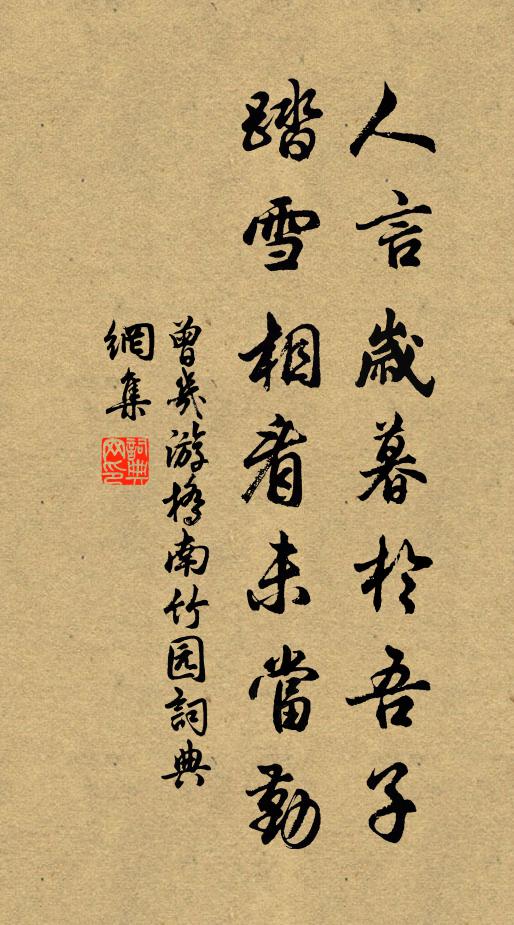 人言歲暮於吾子
踏雪相看未當勤
曾幾游橋南竹园詞典
網集
詞典
网印